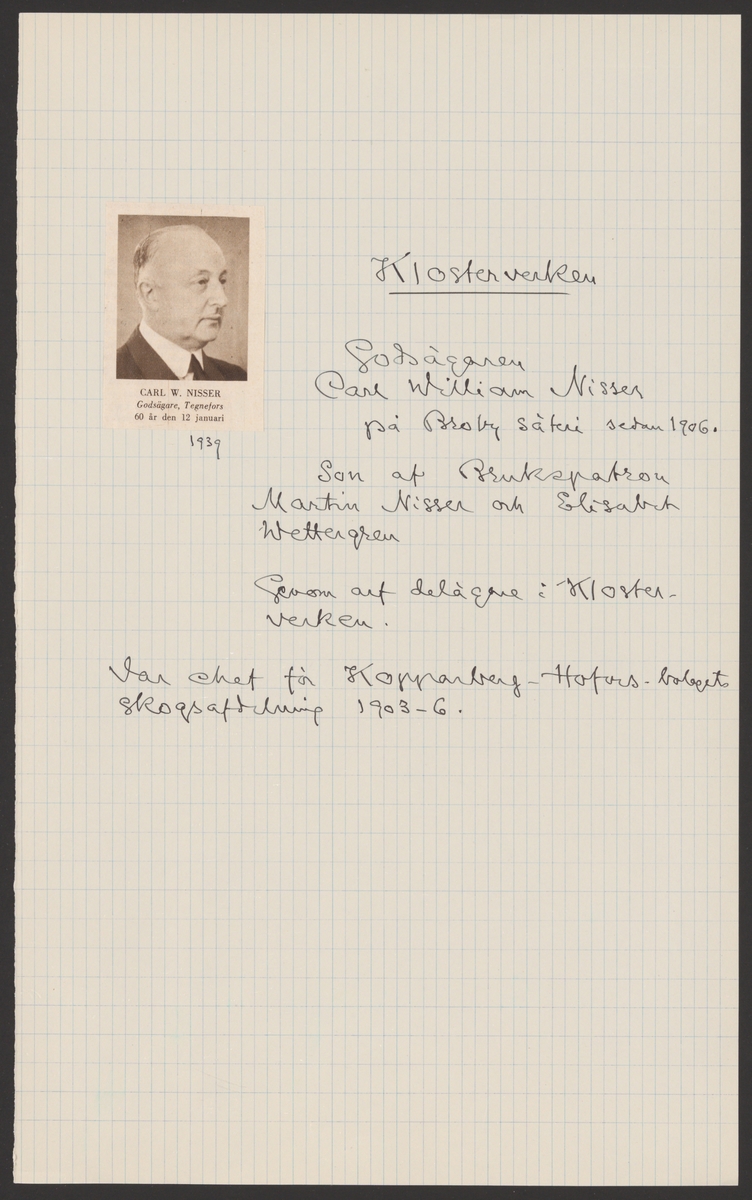 Klosterverken
CARL W. NISSER
Godsägare, Tegnefors
60 år den 12 januari
1939
Godsägaren
Carl William Nisser
på Broby säteri sedan 1906.
Son af Brukspatron
Martin Nisser och Elisabet
Wettergren
Genom arf delägare i Kloster-
verken.
Var chef för Kopparberg-Hofors-bolagets
skogsafdelning 1903-6.